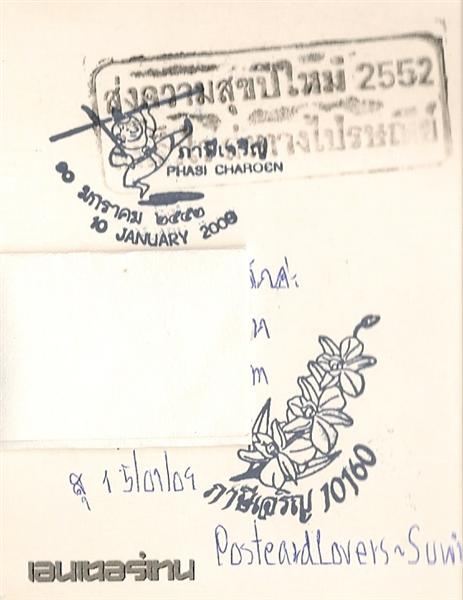 ส่งความสุขปีใหม่ 2552
ทางไปรษณีย์
ภาษีเจริญ
PHASI CHAROEN
๑๐ มกราคม ๒๕๕๒
10 JANUARY 2009
ค่ะ
ภาษีเจริญ 10160
15/01/09
PostcardLovers~Suwi
เอนเตอร์เทน